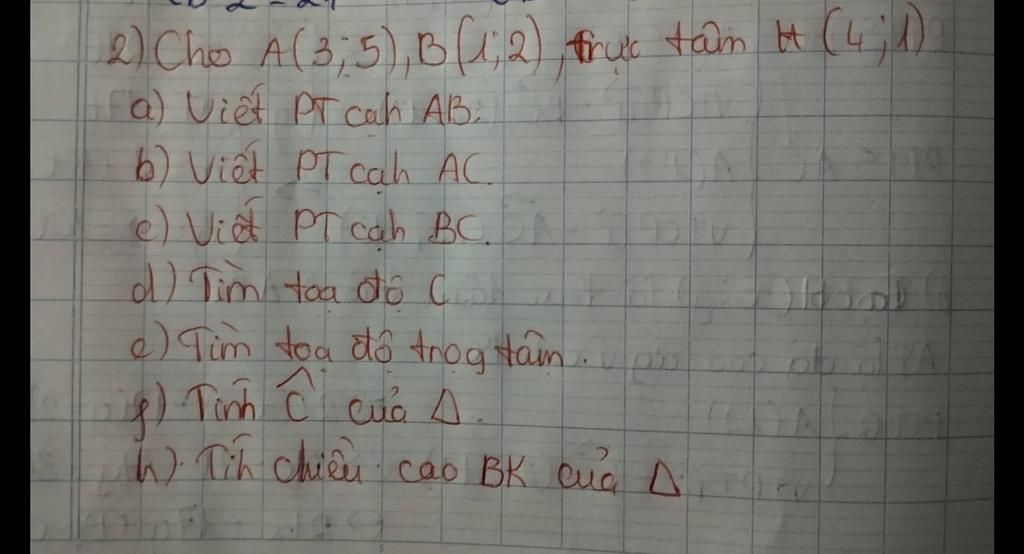 2) Cho A(3;5), B(1;2), trực tâm H (4;1)
a) Viết PT cạh AB.
b) Viết PT cạh AC.
c) Viết PT cạh BC.
d) Tìm toạ độ C
e) Tìm toạ độ trog tâm.
g) Tính Ĉ của Δ.
h). Tíh chiều cao BK của Δ